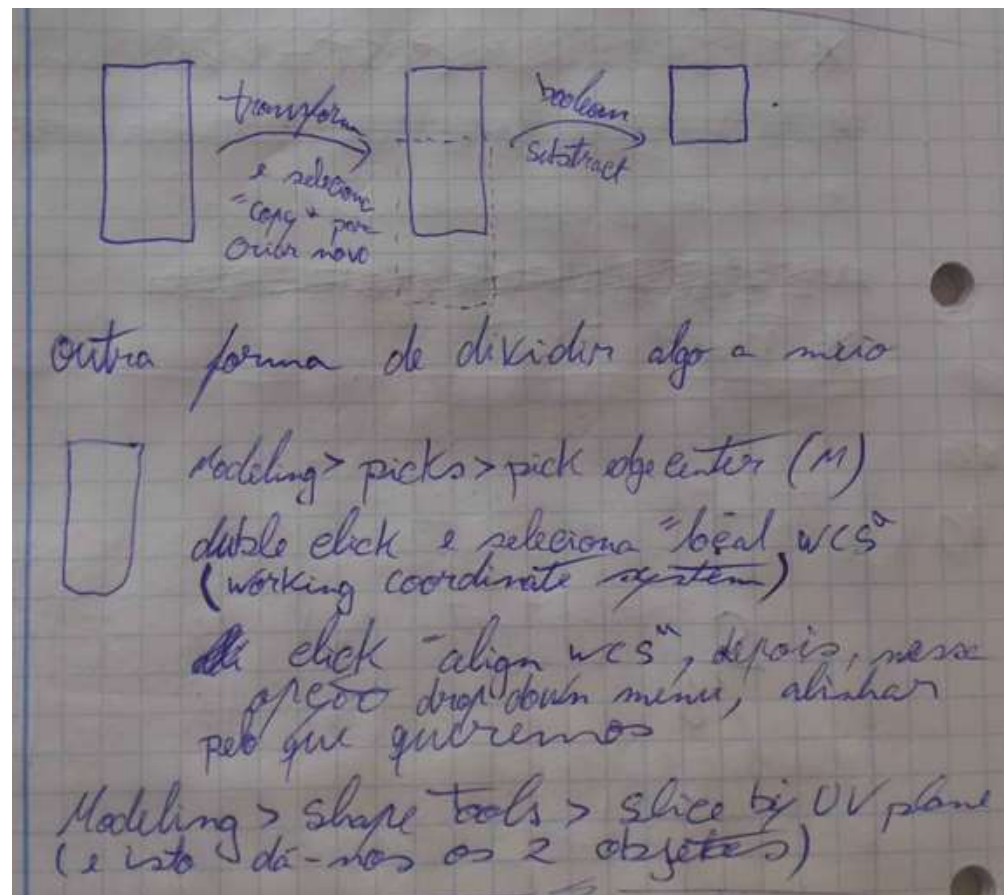 transform
e seleciona
"copy" para
criar novo
boolean
substract
outra forma de dividir algo a meio
Modeling > picks > pick edge center (M)
duble click e seleciona "local WCS"
(working coordinate system)
click "align WCS", depois, nessa
opção drop down menu, alinhar
pelo que queremos
Modeling > shape tools > slice by UV plane
(e isto dá-nos os 2 objetos)